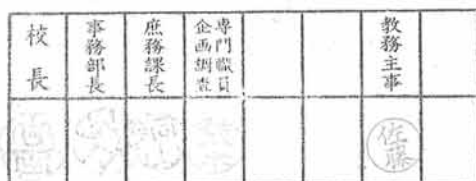 校長
事務部長
庶務課長
専門職員
企画調査
教務主事
佐藤